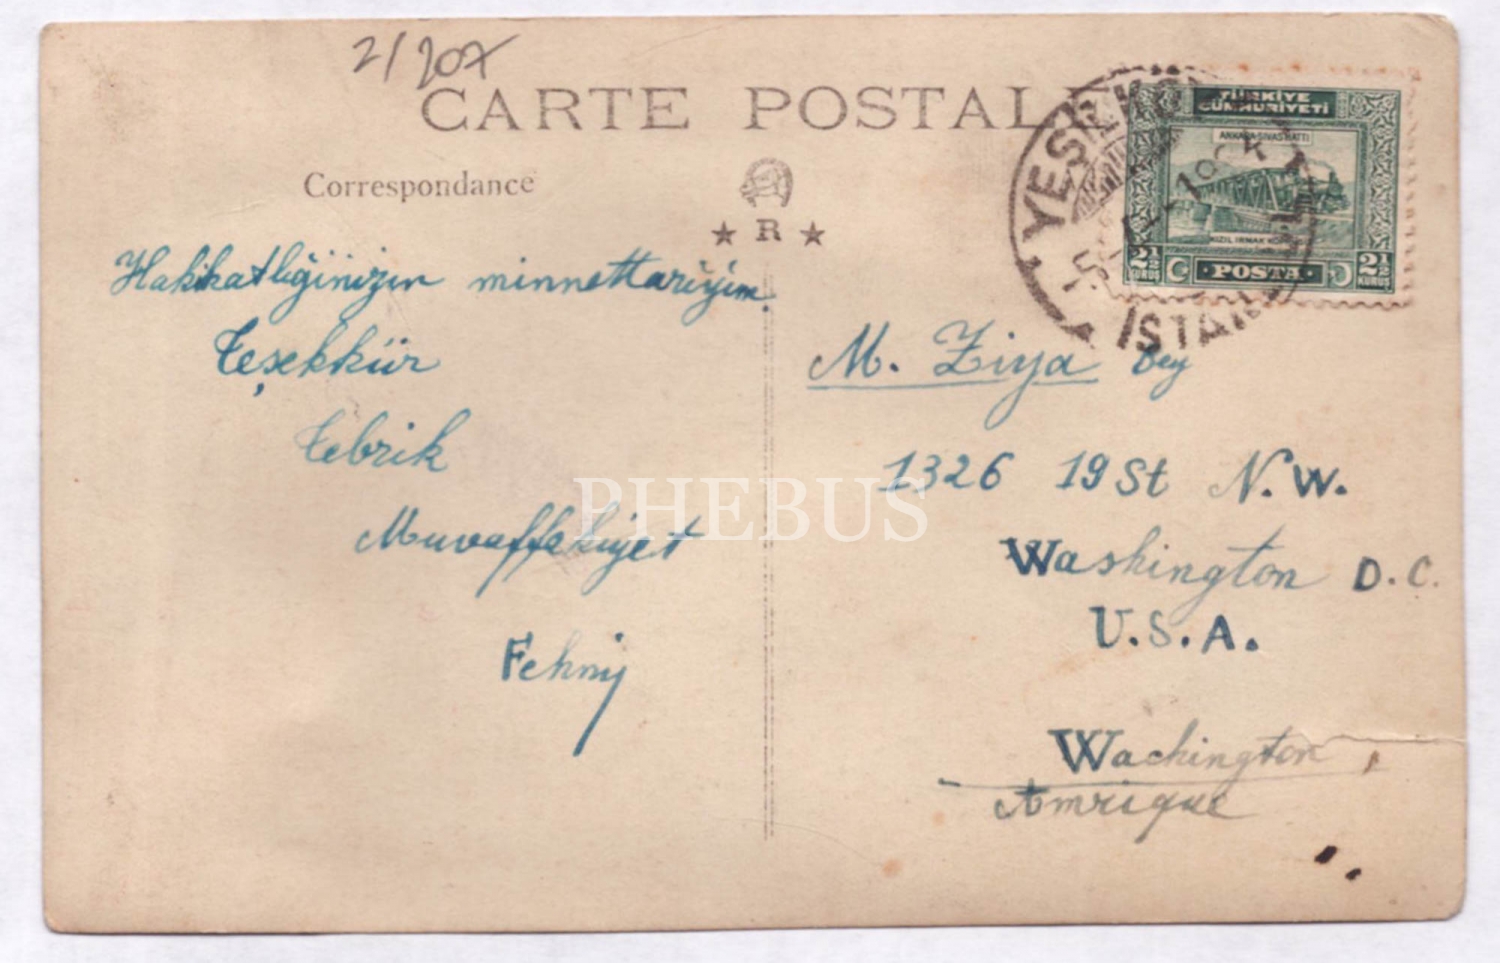 2/207
CARTE POSTALE
Correspondance
R
YEŞİLKÖY
İSTAN
TÜRKİYE
CUMHURİYETİ
ANKARA-SIVAS HATTI
KIZIL IRMAK
2½ KURUŞ POSTA 2½ KURUŞ
Hakikatlığinizın minnettarıyim.
Teşekkür
Tebrik
Muvaffakiyet
Fehmi
M. Ziya Bey
1326 19 St N.W.
Washington D.C.
U.S.A.
Wachington
Amrique
PHEBUS